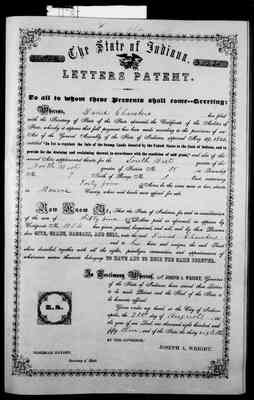 The State of Indiana.
LETTERS PATENT.
To all to whom these Presents shall come—Greeting:
WHEREAS, David Chambers has filed
with the Secretary of State of the State aforesaid, the Certificate of the Auditor of
State, whereby it appears that full payment has been made according to the provisions of an
Act of the General Assembly of the State of Indiana, approved May 29, 1852,
entitled "An Act to regulate the Sale of the Swamp Lands donated by the United States to the State of Indiana, and to
provide for the draining and reclaiming thereof, in accordance with the conditions of said grant;" and also of the
several Acts supplemental thereto for the South West
North West quarter of Section No. in Township
No. 9 North of Range No. West
Forty four Acres to the same more or less, situate
in Monroe County, when said lands were offered for sale.
Now Know Ye, That the State of Indiana, for and in consideration
of the sum of Fifty four Dollars paid as aforesaid, as appears by
Certificate No. has given, granted, bargained, and sold, and by these Presents
does GIVE, GRANT, BARGAIN, AND SELL, unto the said David Chambers
heirs and assigns, the said Tract
above described, together with all the rights, privileges, immunities, and appurtenances of
whatsoever nature thereunto belonging, TO HAVE AND TO HOLD THE SAME FOREVER.
In Testimony Whereof, I, JOSEPH A. WRIGHT, Governor
of the State of Indiana, have caused these Letters
to be made Patent, and the Seal of the State to be
hereunto affixed.
Given under my hand, at the City of Indianapolis,
the day of August in
the year of our Lord one thousand eight hundred and
fifty and of the State the thirty eighth
BY THE GOVERNOR,
JOSEPH A. WRIGHT.
L.S.
NEHEMIAH HAYDEN,
Secretary of State.